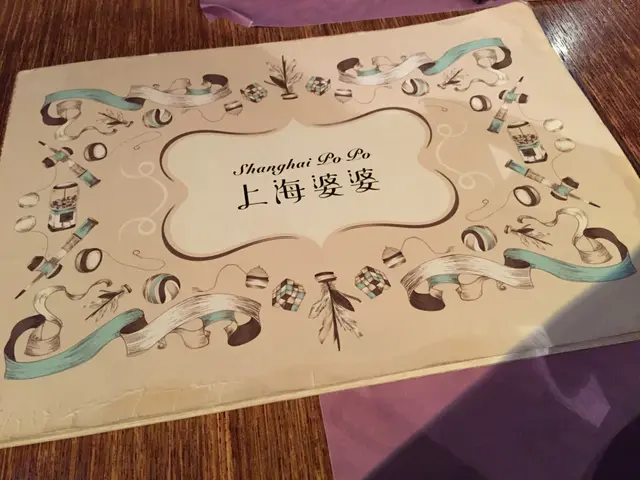 Shanghai Po Po
上海婆婆